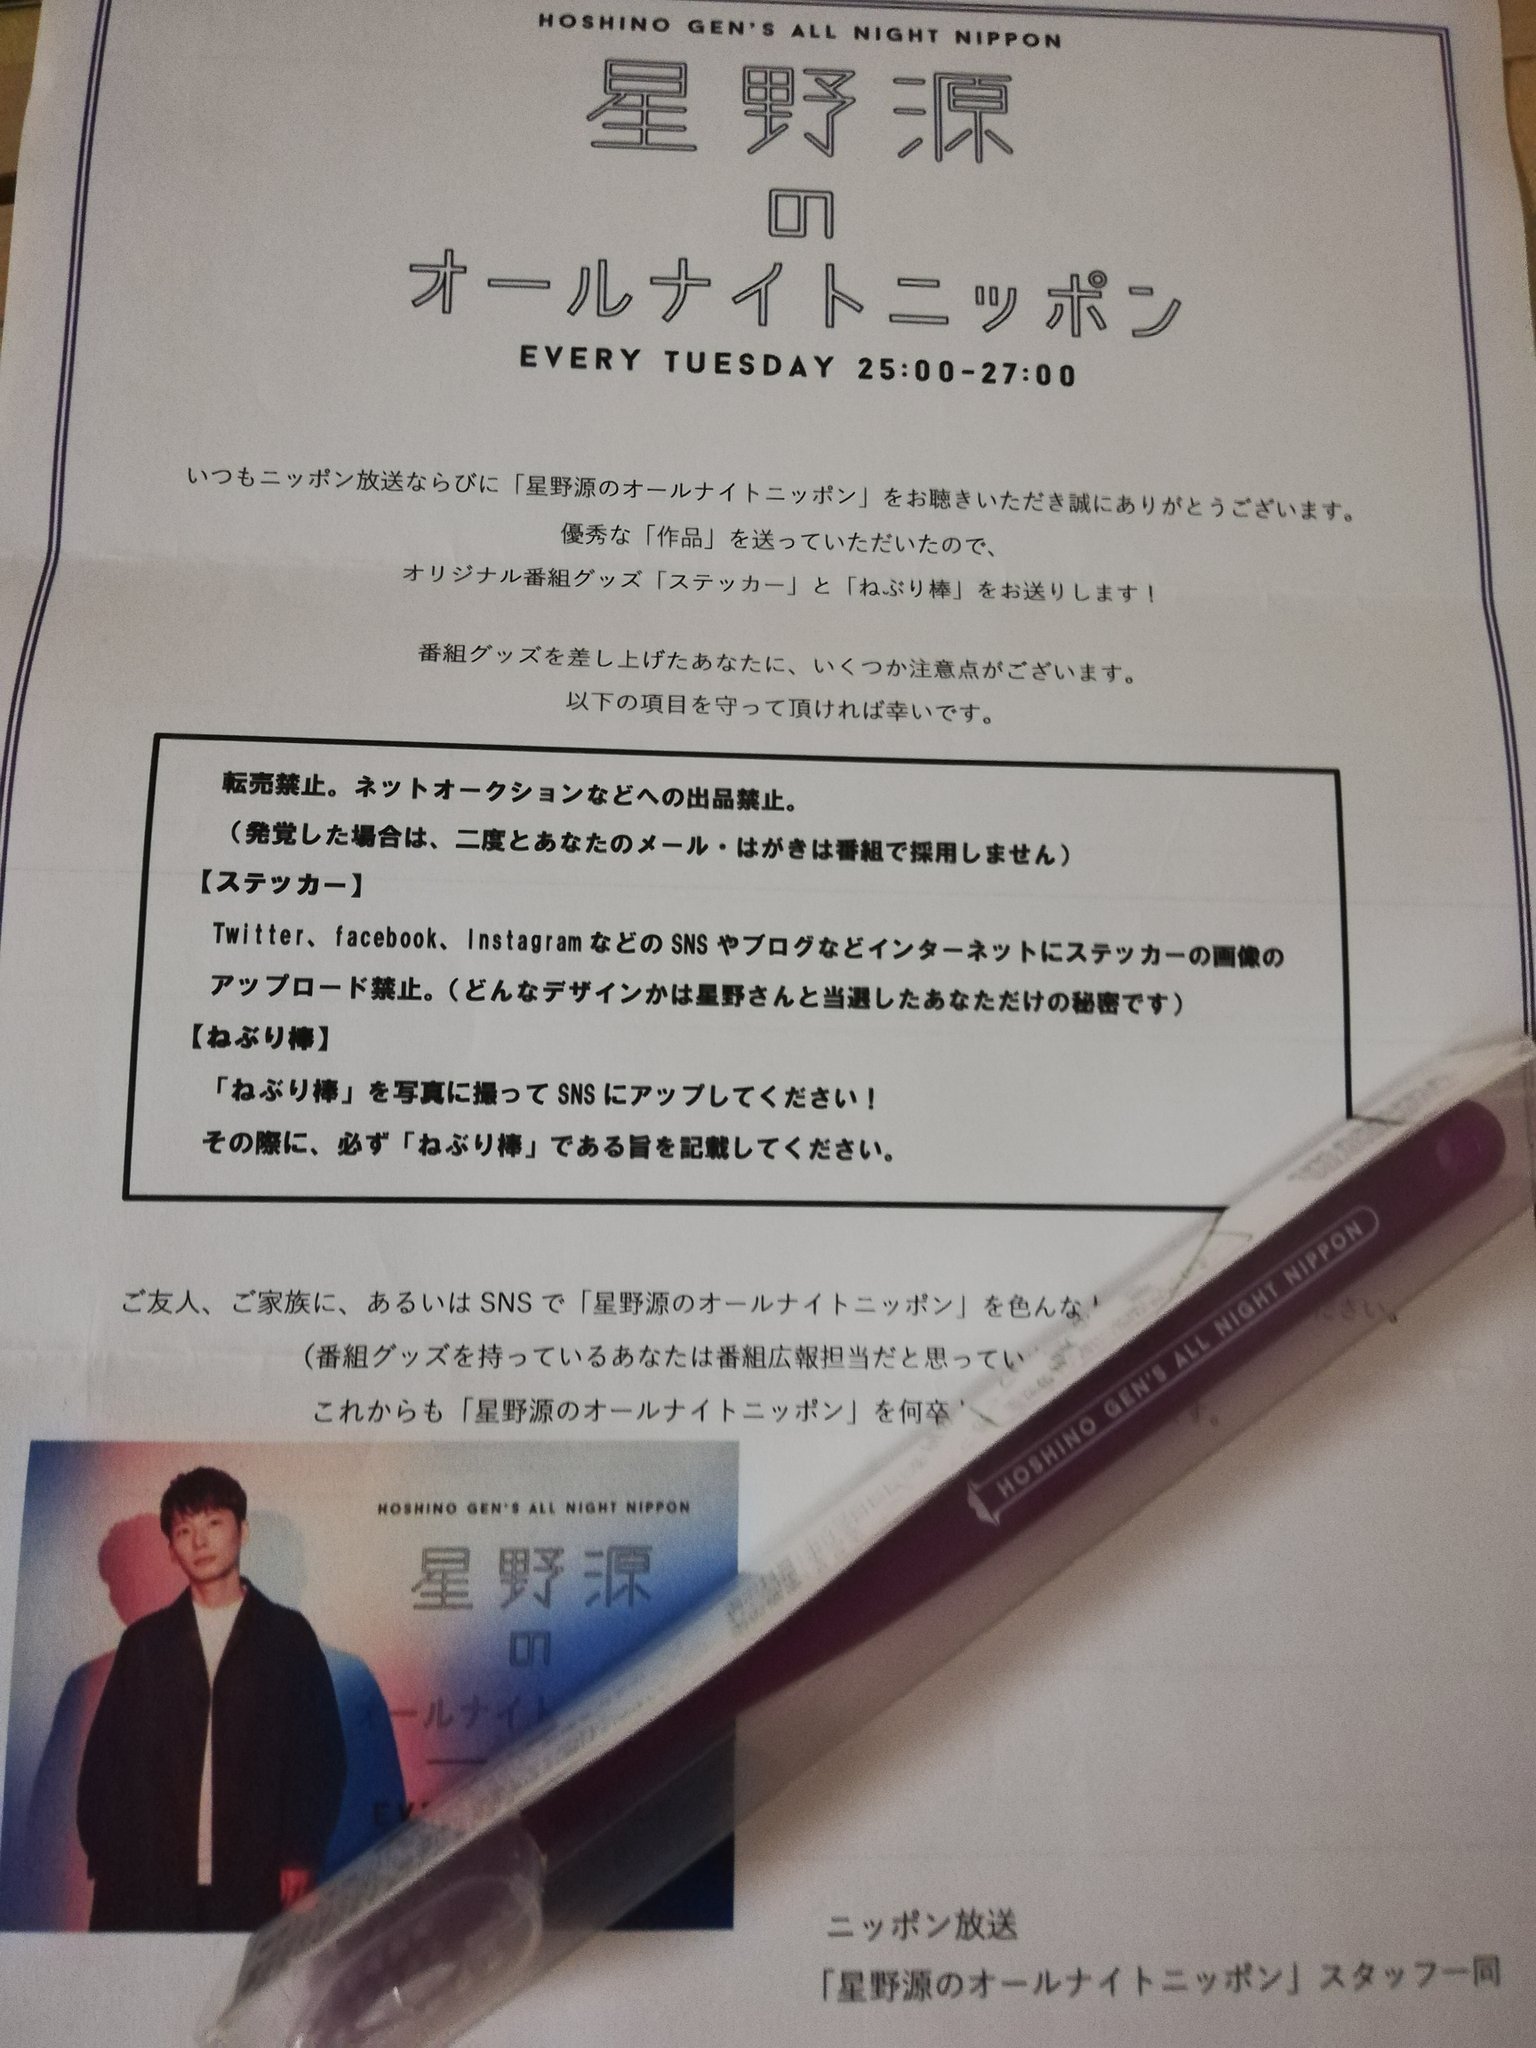 HOSHINO GEN'S ALL NIGHT NIPPON
星野源
の
オールナイトニッポン
EVERY TUESDAY 25:00-27:00
いつもニッポン放送ならびに「星野源のオールナイトニッポン」をお聴きいただき誠にありがとうございます。
優秀な「作品」を送っていただいたので、
オリジナル番組グッズ「ステッカー」と「ねぶり棒」をお送りします！
番組グッズを差し上げたあなたに、いくつか注意点がございます。
以下の項目を守って頂ければ幸いです。
転売禁止。ネットオークションなどへの出品禁止。
（発覚した場合は、二度とあなたのメール・はがきは番組で採用しません）
【ステッカー】
Twitter、facebook、InstagramなどのSNSやブログなどインターネットにステッカーの画像の
アップロード禁止。（どんなデザインかは星野さんと当選したあなただけの秘密です）
【ねぶり棒】
「ねぶり棒」を写真に撮ってSNSにアップしてください！
その際に、必ず「ねぶり棒」である旨を記載してください。
ご友人、ご家族に、あるいはSNSで「星野源のオールナイトニッポン」を色んな
（番組グッズを持っているあなたは番組広報担当だと思ってい
これからも「星野源のオールナイトニッポン」を何卒
HOSHINO GEN'S ALL NIGHT NIPPON
HOSHINO GEN'S ALL NIGHT NIPPON
星野源
の
ールナイト
ニッポン放送
「星野源のオールナイトニッポン」スタッフ一同